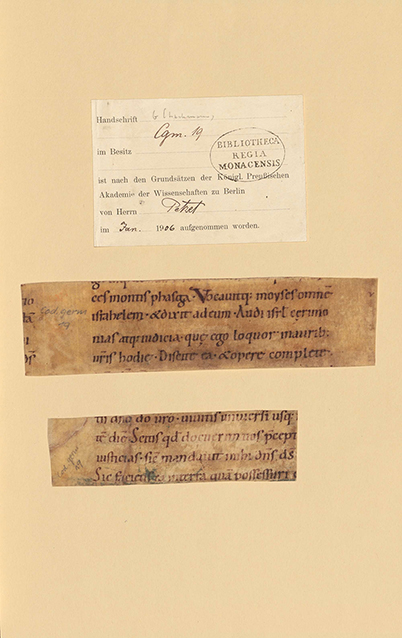 Handschrift G (Lachmann)
Cgm. 19
im Besitz
BIBLIOTHECA
REGIA
MONACENSIS
ist nach den Grundsätzen der Königl. Preußischen
Akademie der Wissenschaften zu Berlin
von Herrn Petzet
im Jan. 1906 aufgenommen worden.
Cod. germ
19
ces montis phasga. Vocauitq; moyses omnē
israhelem · & dixit ad eum · Audi isrl cerimo
nias atq; iudicia · quę ego loquor in aurib;
uris hodie · Discite ea · & opere complete
tē die Scitis qd docuerim uos p̄cept
iusticias · sic mandauit mihi dn̄s ds
Sic facietis